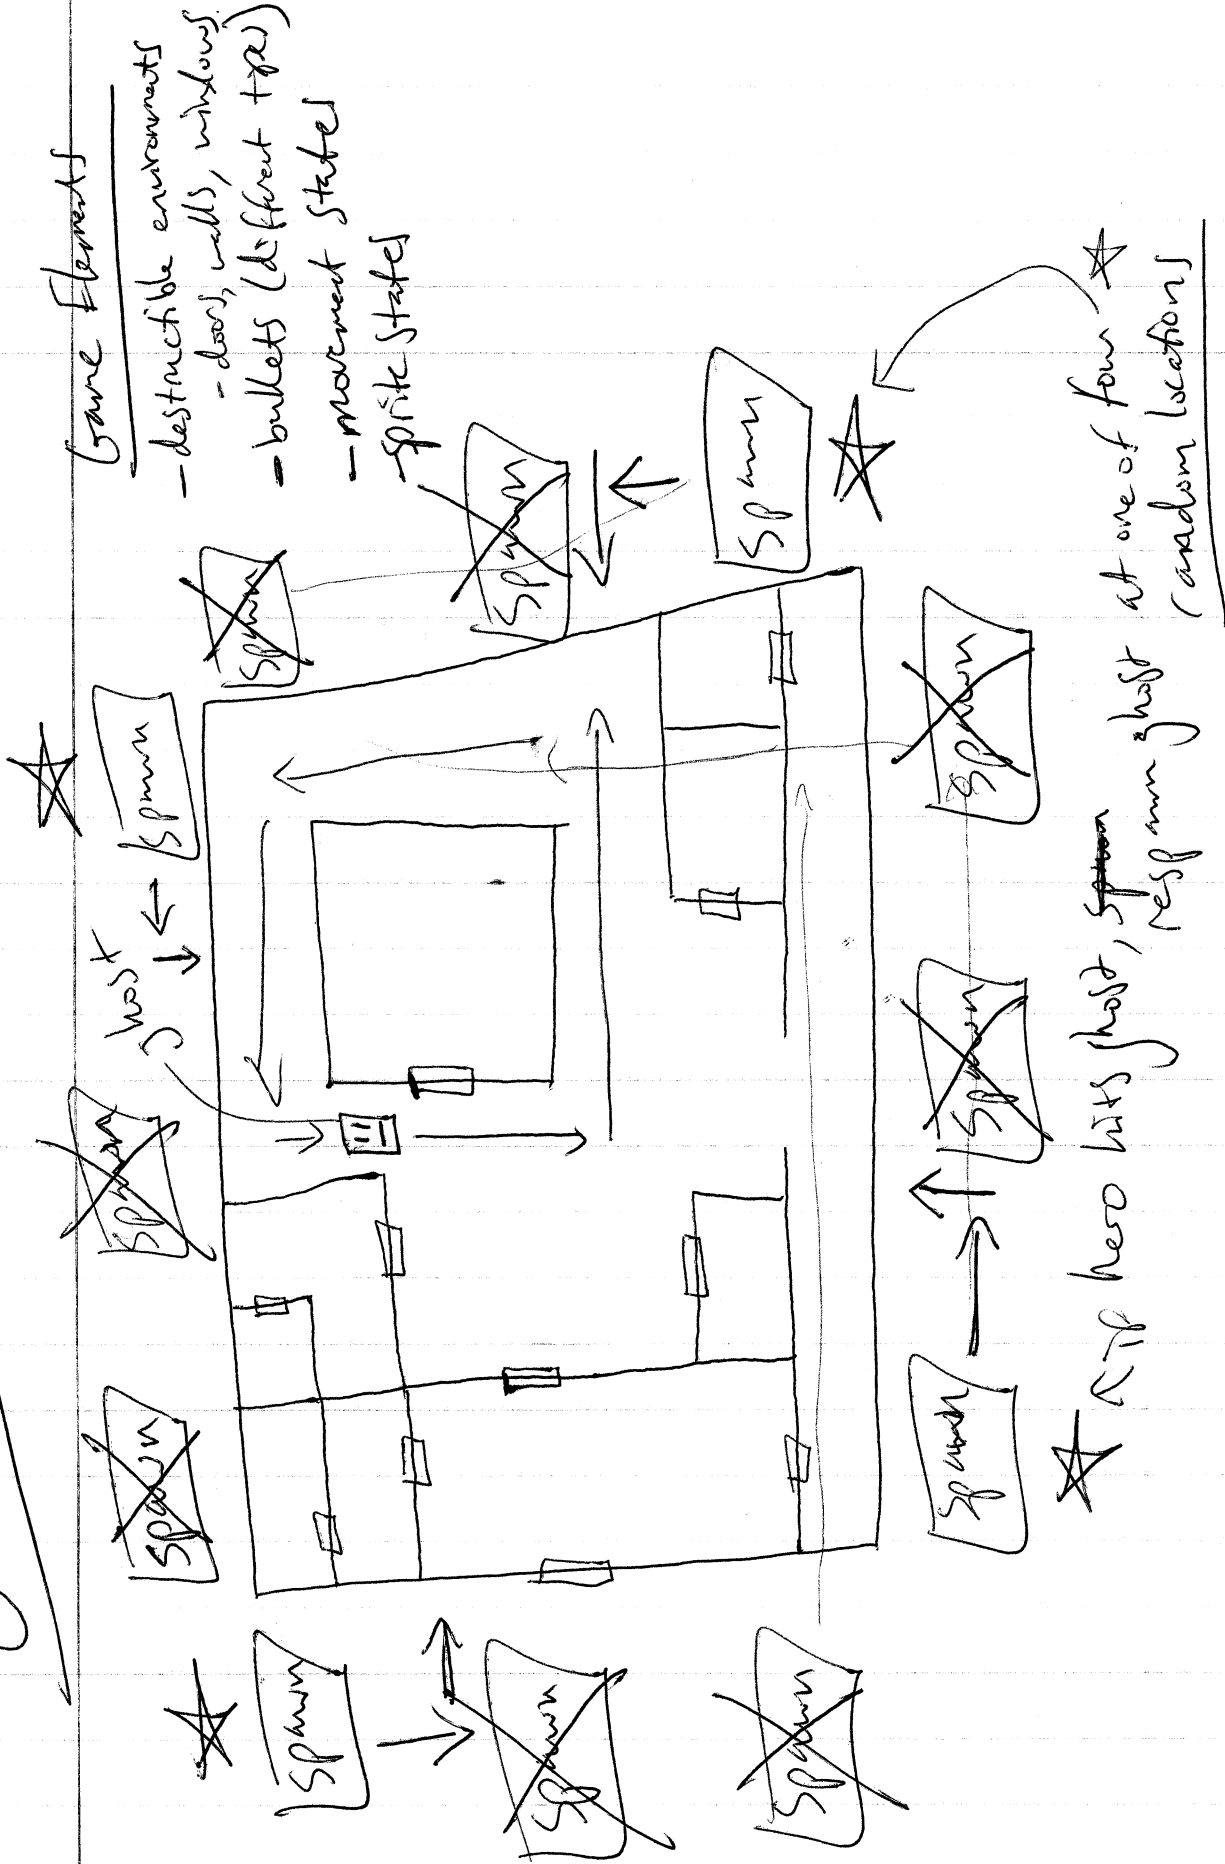 Game Elements
- destructible environments
- doors, walls, windows
- bullets (different types)
- movement states
- sprite states
Spawn
Spawn
Spawn
Spawn
Spawn
Spawn
ghost
Spawn
Spawn
Spawn
Spawn
Spawn
Spawn
hero hits ghost,
respawn ghost at one of four
random locations